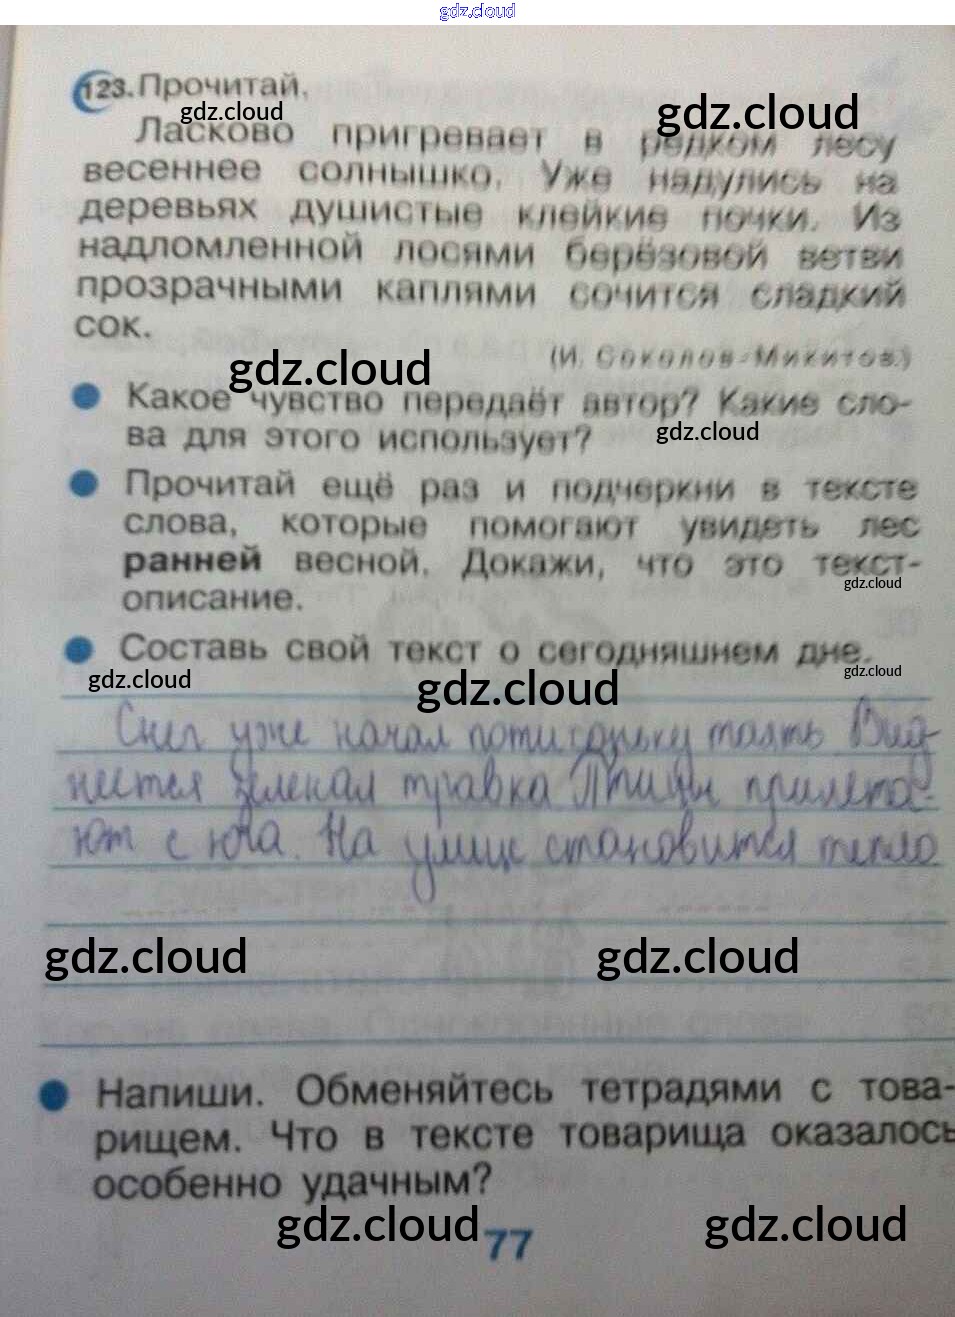 gdz.cloud
123. Прочитай.
gdz.cloud gdz.cloud
Ласково пригревает в редком лесу
весеннее солнышко. Уже надулись на
деревьях душистые клейкие почки. Из
надломленной лосями берёзовой ветви
прозрачными каплями сочится сладкий
сок.
(И. Соколов-Микитов.)
gdz.cloud
Какое чувство передаёт автор? Какие сло-
ва для этого использует?
gdz.cloud
Прочитай ещё раз и подчеркни в тексте
слова, которые помогают увидеть лес
ранней весной. Докажи, что это текст-
описание.
gdz.cloud
Составь свой текст о сегодняшнем дне.
gdz.cloud gdz.cloud gdz.cloud
Снег уже начал потихоньку таять Вид-
неется зеленая травка Птицы прилета-
ют с юга. На улице становится тепло
gdz.cloud gdz.cloud
Напиши. Обменяйтесь тетрадями с това-
рищем. Что в тексте товарища оказалось
особенно удачным?
gdz.cloud gdz.cloud
77